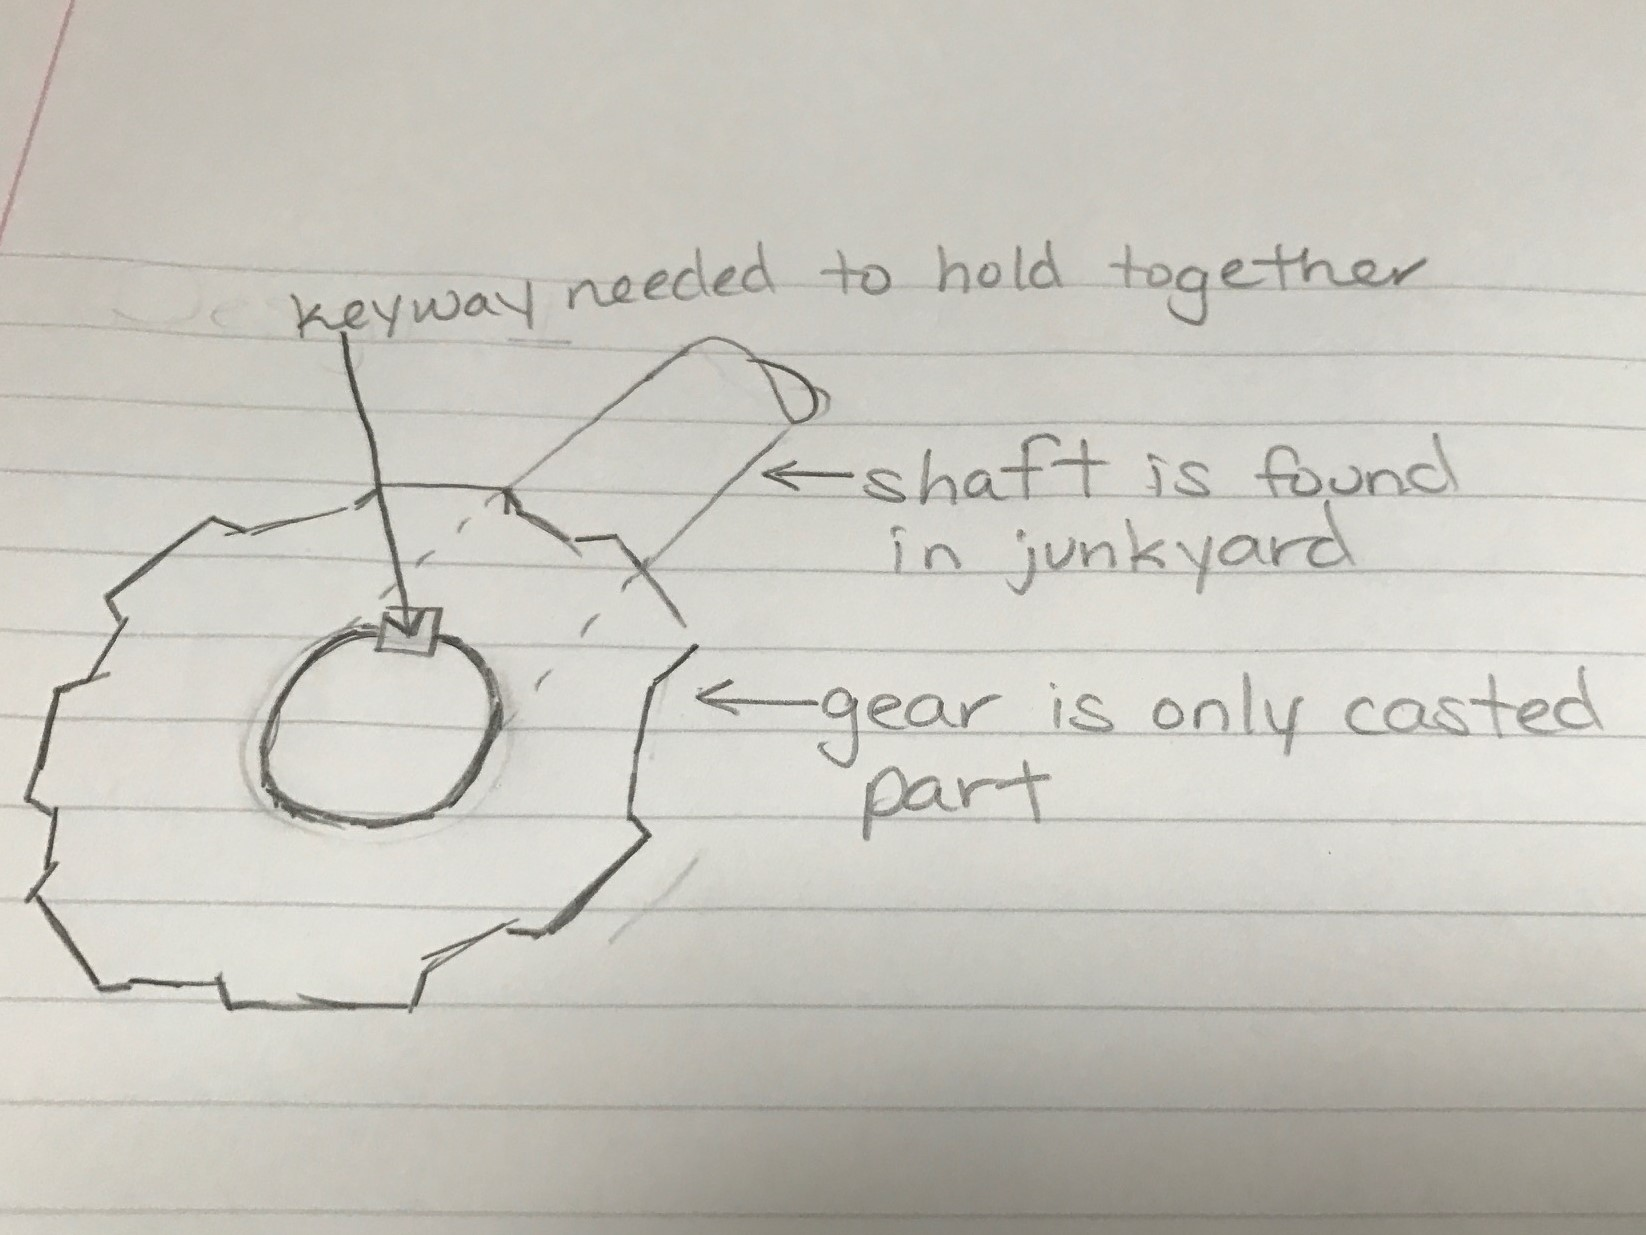 keyway needed to hold together
shaft is found
in junkyard
gear is only casted
part